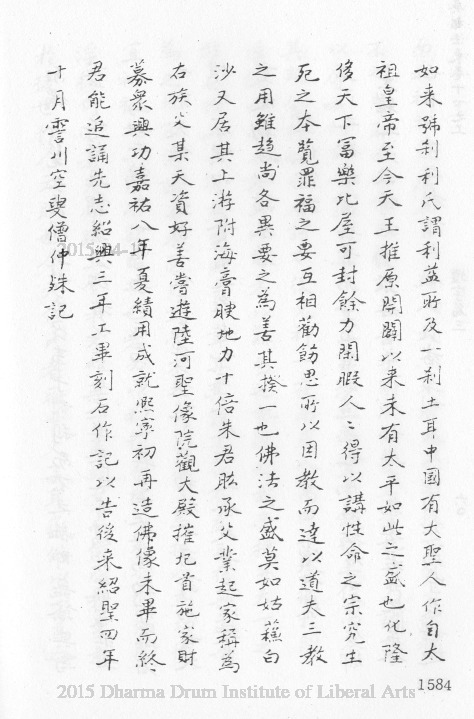 如来號刹利氏謂利益所及一刹土耳中國有大聖人作自太
祖皇帝至今天王推原開闢以来未有太平如此之盛也化隆
俗天下冨樂比屋可封餘力閑暇人〻得以講性命之宗究生
死之本覽罪福之要互相勸飭思所以因教而達以道夫三教
之用雖趋尚各異要之為善其揆一也佛法之盛莫如姑蘓白
沙又居其上游附海膏腴地力十倍朱君肱承父業起家稱為
右族父某天資好善嘗遊陸河聖像院觀大殿摧圮首施家財
募衆興功嘉祐八年夏績用成就熈寧初再造佛像未畢而終
君能追誦先志紹興三年工畢刻石作記以告後来紹聖四年
十月霅川空叟僧仲殊記
1584
2015 Dharma Drum Institute of Liberal Arts